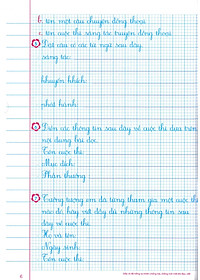 b. tên một câu chuyện đồng thoại
c. tên cuộc thi sáng tác truyện đồng thoại
5 Đặt câu có các từ ngữ sau đây:
sáng tác:
khuyến khích:
phát hành:
6 Điền các thông tin sau đây về cuộc thi dựa trên
nội dung bài đọc:
Tên cuộc thi:
Mục đích:
Phần thưởng:
7 Tưởng tượng em đã từng tham gia một cuộc thi
nào đó, hãy viết đầy đủ những thông tin sau
đây về cuộc thi:
Họ và tên:
Ngày sinh:
Tên cuộc thi:
6